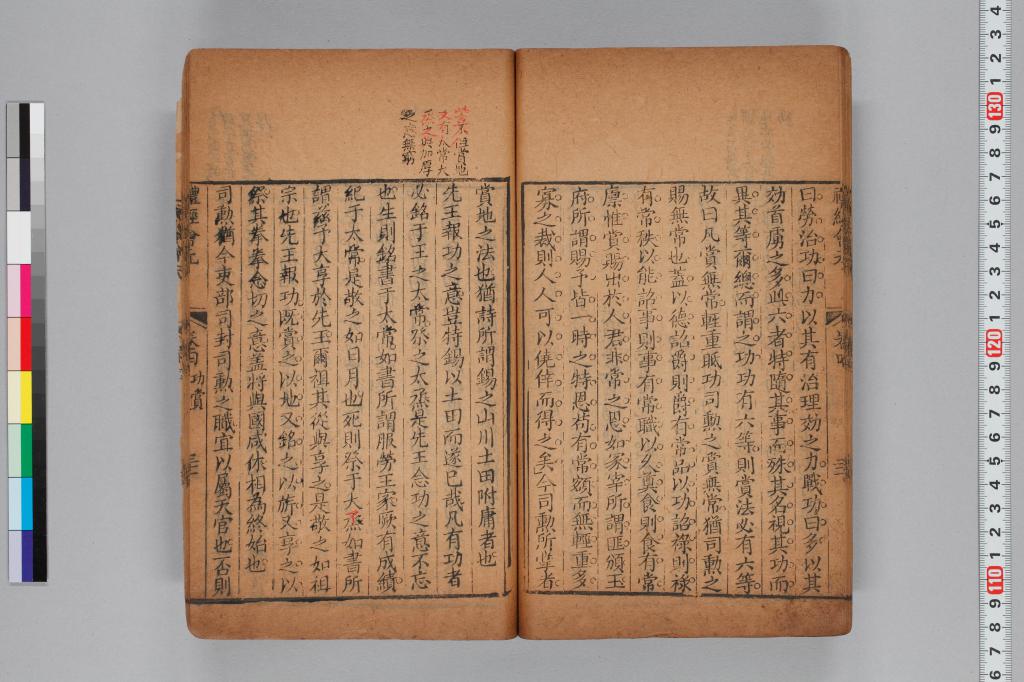 曰勞治功曰力以其有治理効之力職功曰多以其
効首虜之多此六者特隨其事而殊其名視其功而
異其等爾總而謂之功功有六等則賞法必有六等
故曰凡賞無常輕重眡功司勲之賞無常猶司勲之
賜無常也蓋以德詔爵則爵有常品以功詔祿則祿
有常秩以能詔事則事有常職以久奠食則食有常
廩惟賞賜出於人君非常之恩如冢宰所謂匪頒玉
府所謂賜予皆一時之特恩苟有常額而無輕重多
寡之裁則人人可以僥倖而得之矣今司勲所掌者
賞地之法也猶詩所謂錫之山川土田附庸者也
先王報功之意豈特錫以土田而遂已哉凡有功者
必銘于王之太常祭之太烝是先王念功之意不忘
也生則銘書于太常如書所謂服勞王家厥有成績
紀于太常是敬之如日月也死則祭于大烝如書所
謂茲予大享於先王爾祖其從與享之是敬之如祖
宗也先王報功既賞之以地又銘之以旂又享之以
祭其拳拳念切之意蓋將與國咸休相為終始也
司勲猶今吏部司封司勲之職宜以屬天官也否則
賞地
又有太常大
烝之與加厚
之意無窮
功賞